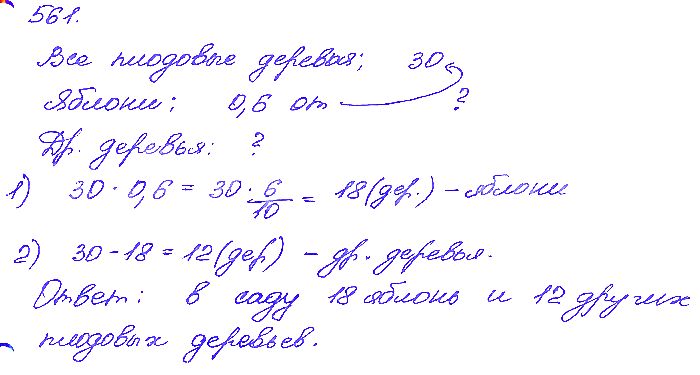 561.
Все плодовые деревья; 30
Яблони; 0,6 от ?
Др. деревья: ?
1) 30 · 0,6 = 30 · 6/10 = 18 (дер.) – яблони
2) 30 – 18 = 12 (дер) – др. деревья.
Ответ: в саду 18 яблонь и 12 других
плодовых деревьев.